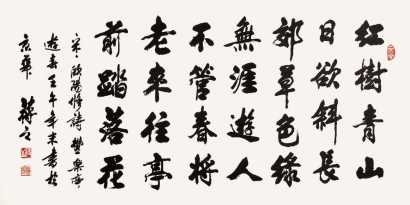 紅樹青山
日欲斜長
郊草色綠
無涯遊人
不管春將
老來往亭
前踏落花
宋歐陽修詩豐樂亭
遊春壬午年末書於
京華